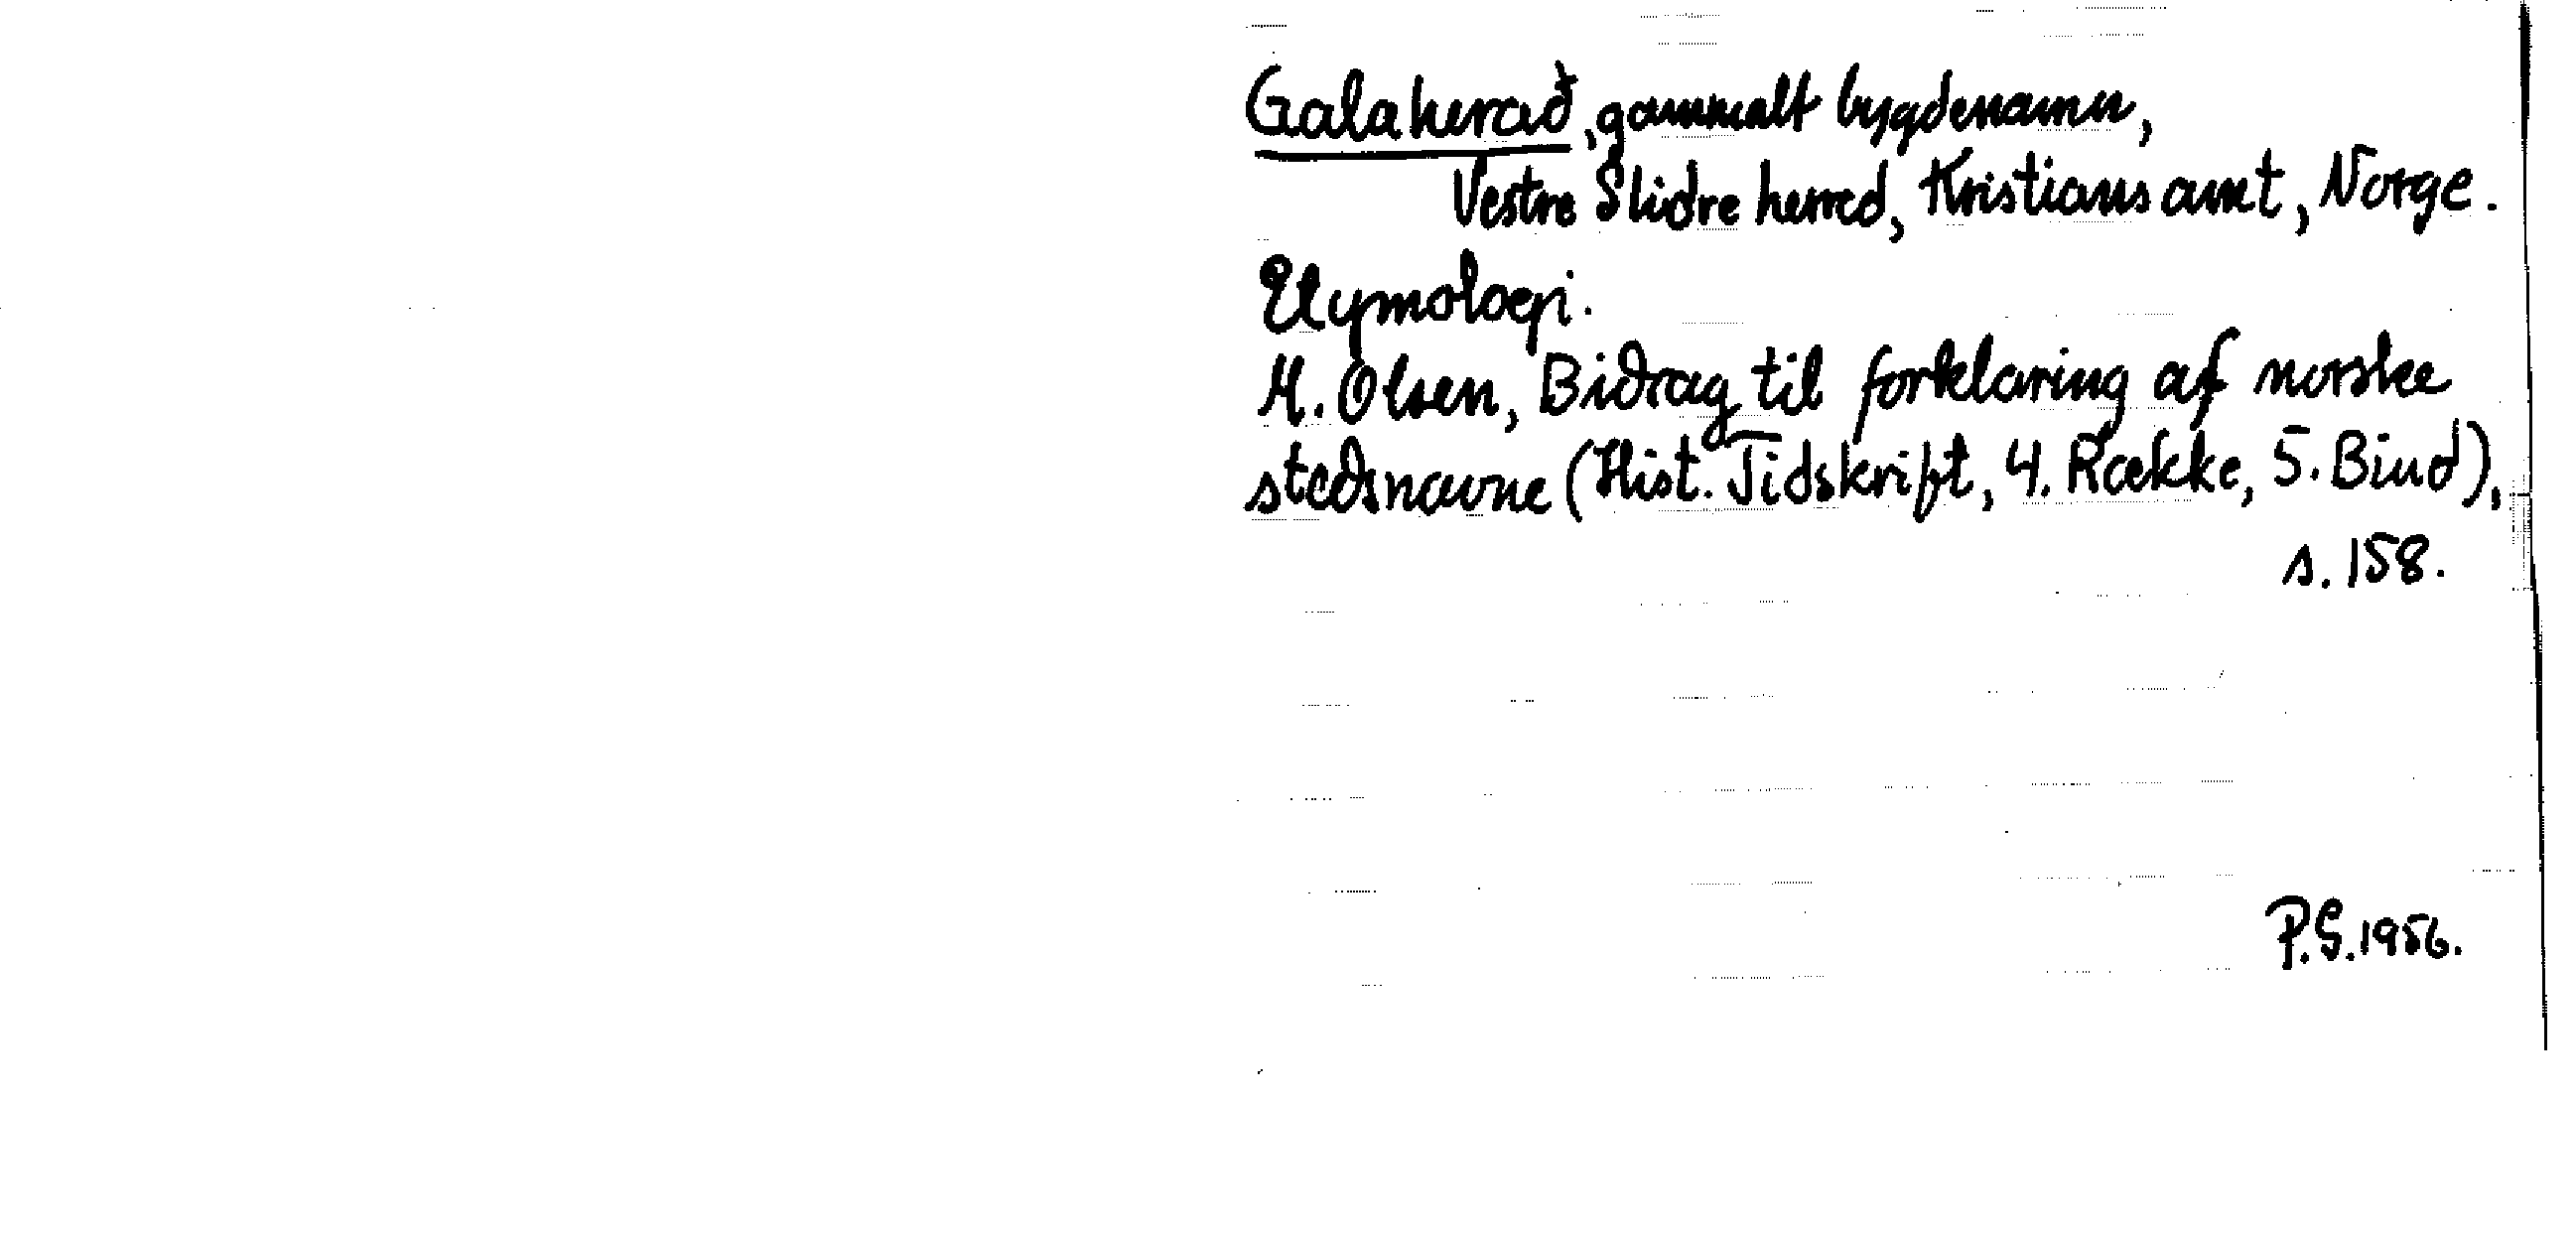 Galaherað, gammalt bygdenamn,
Vestre Slidre herred, Kristians amt, Norge.
Etymologi.
M. Olsen, Bidrag til forklaring af norske
stedsnavne (Hist. Tidskrift, 4. Række, 5. Bind),
s. 158.
P.G. 1956.